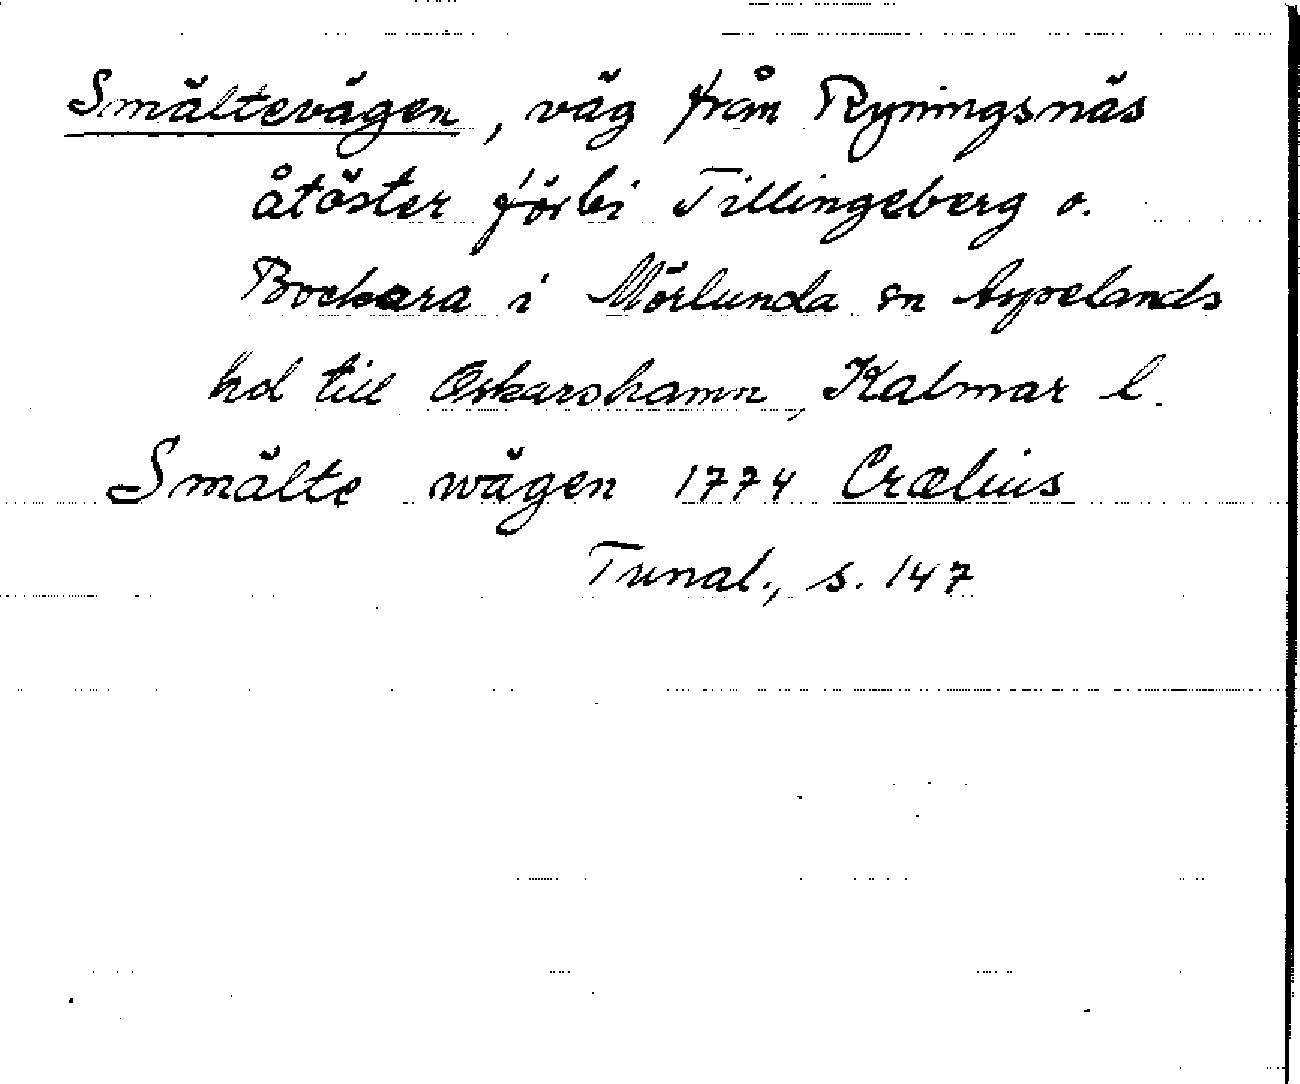 Smältevägen, väg från Ryningsnäs
åtöster förbi Tillingeberg o.
Bockara i Mörlunda sn Aspelands
hd till Oskarshamn, Kalmar l.
Smälte wägen 1774 Crælius
Tunal., s. 147